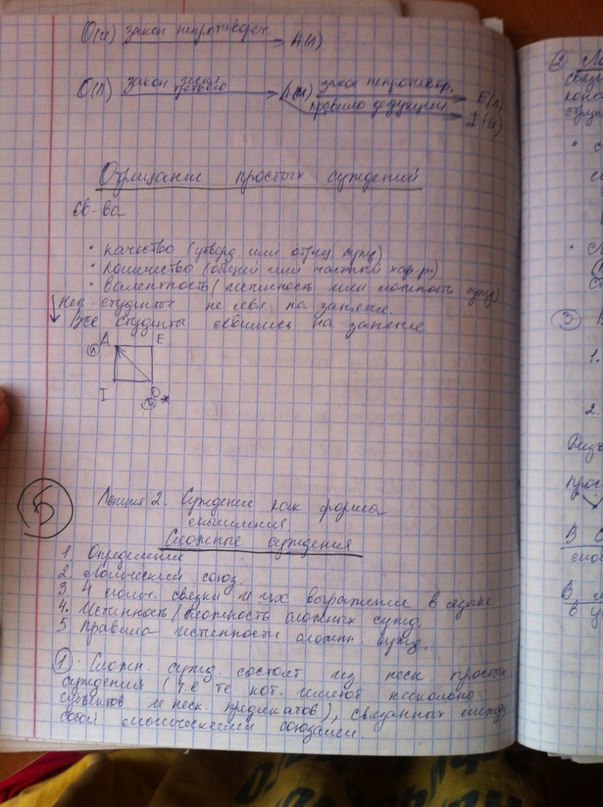 О(и) закон непротивореч. А(л)
О(л) закон искл. третьего А(и) закон непротивор. Е(л)
правило дедукции I(и)
Отрицание простых суждений
Св-ва.
• качество (утверд или отриц. сужд)
• количество (общий или частный хар-р)
• валентность (истинность или ложность сужд)
Нек. студенты не явл. на занятие.
Все студенты явились на занятие
А Е
л
I О
и
5 Лекция 2. Суждение как форма
мышления
Сложные суждения
1. Определение
2. Логический союз.
3. 4 связки и их выражение в языке.
4. Истинность/ложность сложных сужд.
5. Правила истинности сложн. сужд.
1. Сложн. сужд. состоят из неск. простых
суждений (т.е те кот. имеют несколько
субъектов и неск. предикатов), связанных между
собой логическими союзами.
2
•
•
3
1.
2.
прос
В
В